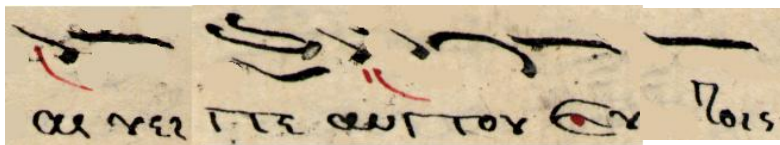 αι νει τε αυ τον εν τοις